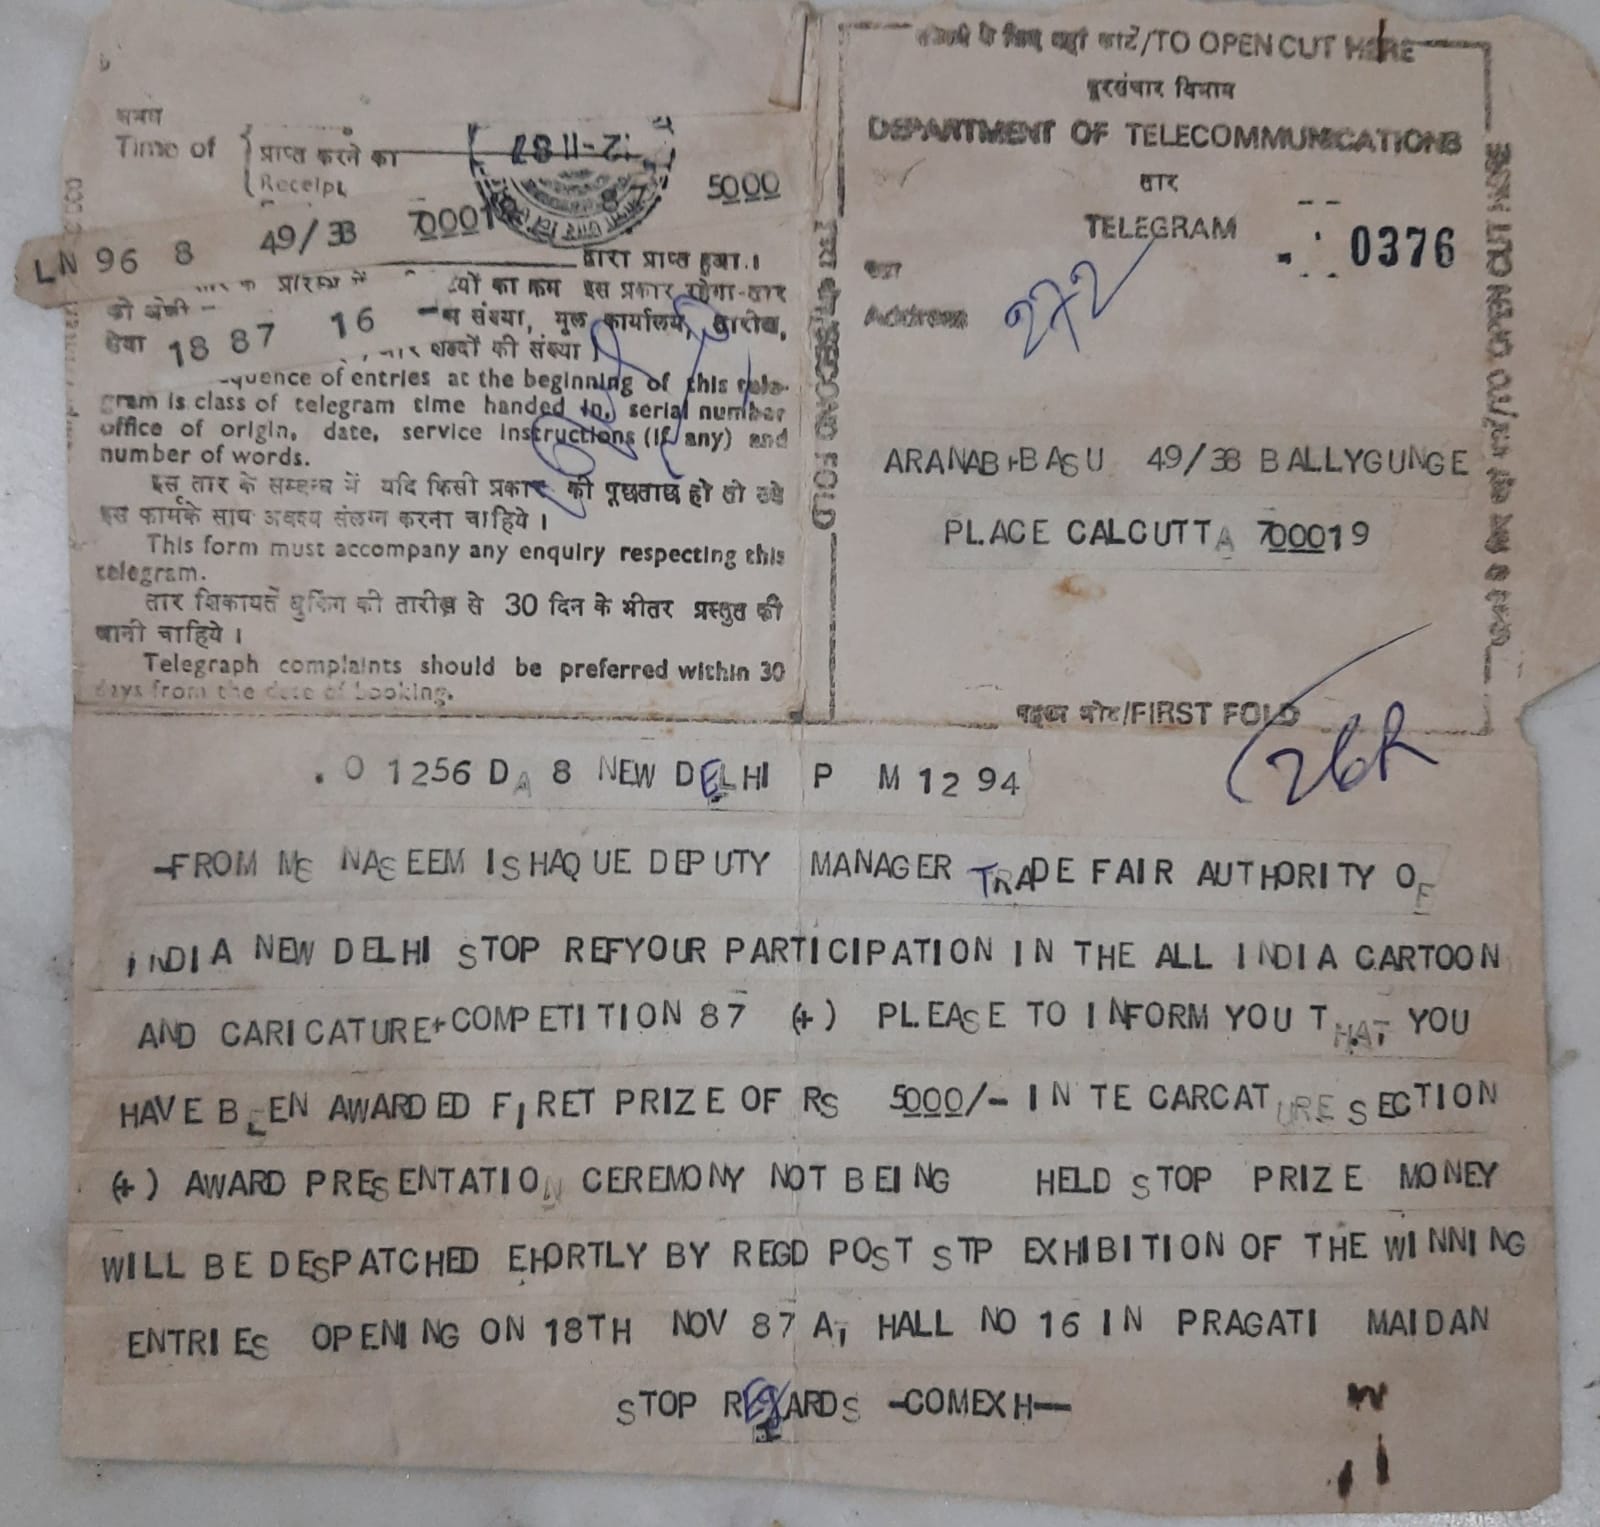 समय
Time of { प्राप्त करने का
Receipt
12-11 87
5000
LN 96 8 49/3B 70001
द्वारा प्राप्त हुआ.।
प्रारम्भ में का क्रम इस प्रकार रहेगा-तार
की श्रेणी -
सेवा 18 87 16 संख्या, मूल कार्यालय, तारीख,
शब्दों की संख्या ।
quence of entries at the beginning of this tele-
gram is class of telegram time handed in, serial number
office of origin, date, service instructions (if any) and
number of words.
इस तार के सम्बन्ध में यदि किसी प्रकार की पूछताछ हो तो उसे
इस फार्मके साथ अवश्य संलग्न करना चाहिये ।
This form must accompany any enquiry respecting this
telegram.
तार शिकायतें बुकिंग की तारीख से 30 दिन के भीतर प्रस्तुत की
जानी चाहिये ।
Telegraph complaints should be preferred within 30
days from the date of booking.
SECOND FOLD
खोलने के लिए यहां काटें/TO OPEN CUT HERE
दूरसंचार विभाग
DEPARTMENT OF TELECOMMUNICATIONS
तार
TELEGRAM
0376
पता
Address
272
ARANAB+BASU 49/3B BALLYGUNGE
PLACE CALCUTTA 700019
/TO OPEN CUT HERE
पहला मोड़/FIRST FOLD
. O 1256 DA 8 NEW DELHI P M 12 94
-FROM MS NASEEM ISHAQUE DEPUTY MANAGER TRADE FAIR AUTHORITY OF
INDIA NEW DELHI STOP REFYOUR PARTICIPATION IN THE ALL INDIA CARTOON
AND CARICATURE+COMPETITION 87 (+) PLEASE TO INFORM YOU THAT YOU
HAVE BEEN AWARDED FIRET PRIZE OF RS 5000/- IN TE CARCATURE SECTION
(+) AWARD PRESENTATION CEREMONY NOT BEING HELD STOP PRIZE MONEY
WILL BE DESPATCHED EHORTLY BY REGD POST STP EXHIBITION OF THE WINNING
ENTRIES OPENING ON 18TH NOV 87 AT HALL NO 16 IN PRAGATI MAIDAN
STOP REGARDS -COMEXH-